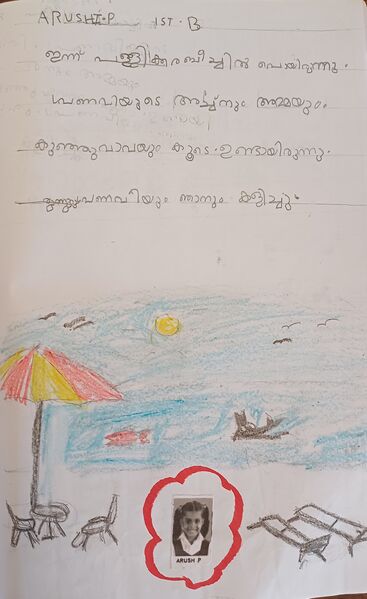 ARUSHI.P 1ST.B
ഇന്ന് പള്ളിക്കരബീച്ചിൽ പോയിരുന്നു.
പ്രണവിയുടെ അച്ഛനും അമ്മയും.
കുഞ്ഞുവാവയും കൂടെ ഉണ്ടായിരുന്നു.
പ്രണവിയും ഞാനും കളിച്ചു.
ARUSH P